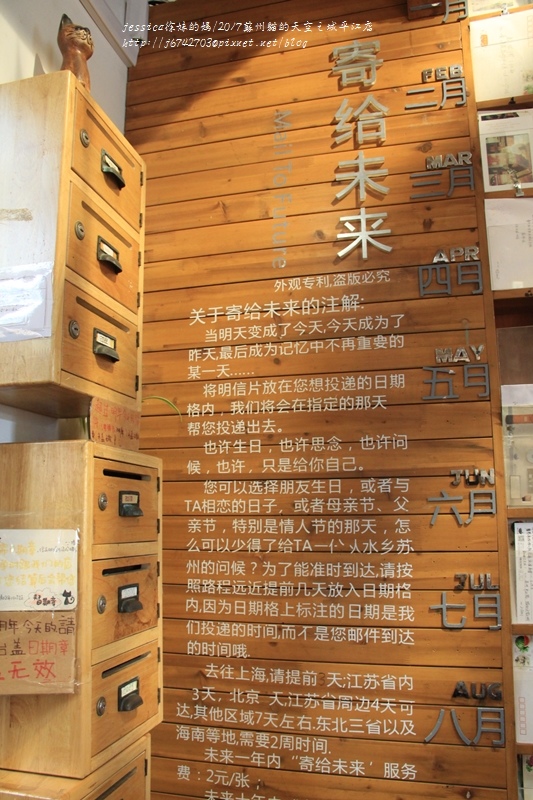 http://j6742703@pixnet.net/blog
寄给未来
Mail To Future
外观专利,盗版必究
关于寄给未来的注解:
当明天变成了今天,今天成为了
昨天,最后成为记忆中不再重要的
某一天......
将明信片放在您想投递的日期
格内，我们将会在指定的那天
帮您投递出去。
也许生日，也许思念，也许问
候，也许，只是给你自己。
您可以选择朋友生日，或者与
TA相恋的日子，或者母亲节、父
亲节，特别是情人节的那天，怎
么可以少得了给TA一个从水乡苏
州的问候？为了能准时到达,请按
照路程远近提前几天放入日期格
内,因为日期格上标注的日期是我
们投递的时间,而才是您邮件到达
的时间哦.
去往上海,请提前 天;江苏省内
3天，北京 天,江苏省周边4天可
达,其他区域7天左右.东北三省以及
海南等地,需要2周时间.
未来一年内“寄给未来’服务
费：2元/张；
月
FEB
二月
MAR
三月
APR
四月
MAY
五月
JUN
六月
JUL
七月
AUG
八月
今天敬請
日期章
无效